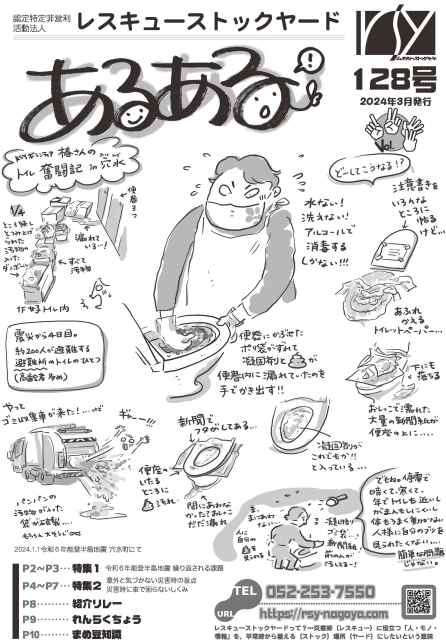 認定特定非営利
活動法人
レスキューストックヤード
rsy
128号
2024年3月発行
あるある
Vol.
椿さんの
トイレ奮闘記 in 穴水
便器3つ
1/4
漏れている…
すべて
汚物
1F女子トイル内
震災から4日目。
約200人が避難する
避難所のトイレのひとつ
(高齢者多め)
水ない!
洗えない!
アルコールで
消毒する
しかない!!!
どーしてこうなる!?
注意書きも
いろんな
ところに
貼るけど…
あふれ
かえる
トイレットペーパー…
便器にかぶせた
ポリ袋がずれて
凝固剤と
便器内に漏れていたのを
手でかき出す!!
下にも
落ちる
おしっこで濡れた
大量の新聞紙が
便座の上に…
やっと
ゴミ収集車が来た!…けど
ギャー!!!
パンパンの
汚物が入った
袋が破裂…
新聞で
フタがしてある…
便座の
いたる
ところに
汚れ
間にあわな
かった?おしっこ
だだ漏れ
凝固剤が
これでもか!!
と入っている…
でもね。停電で
暗くて、寒くて、
年で、トイレも近い
がまんもしにくいし
体もうまく動かない
人様に自分のブツを
見られたくない…
簡単な問題
じゃない。
2024.1.1 令和6年能登半島地震 穴水町にて
P2~P3… 特集1 令和6年能登半島地震 繰り返される課題
P4~P7… 特集2 意外と気づかない災害時の盲点
災害時に車で困らないしくみ
P8……… 紹介リレー
P9……… れんらくちょう
P10…… まめ豆知識
TEL 052-253-7550
URL https://rsy-nagoya.com
レスキューストックヤードって?…災害時(レスキュー)に役立つ「人・モノ・
情報」を、平常時から蓄える(ストック)場所(ヤード)にしたいという意味